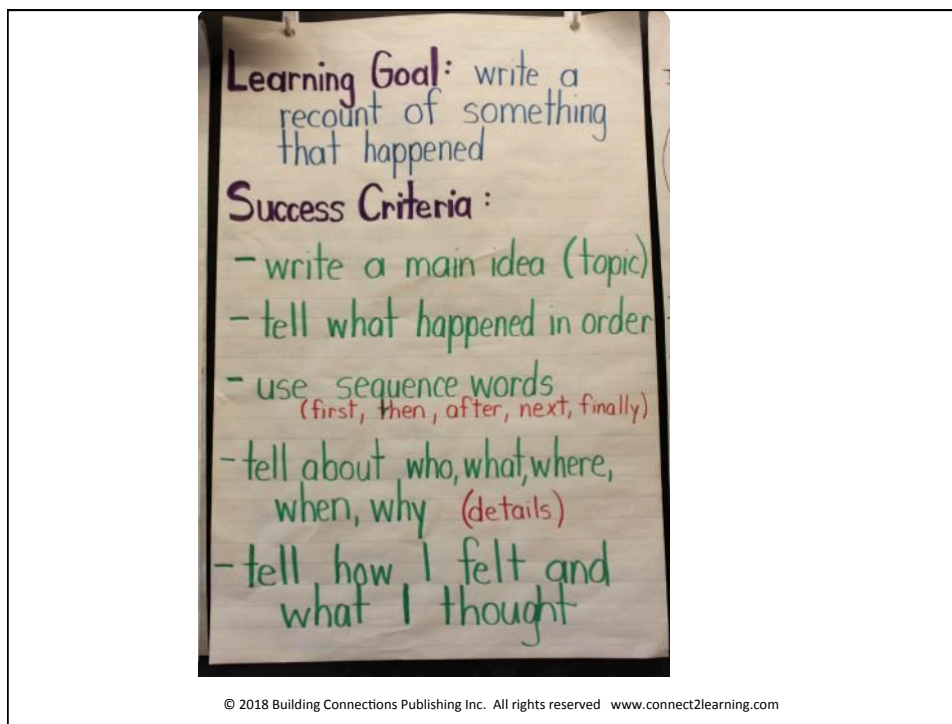 Learning Goal: write a
recount of something
that happened
Success Criteria:
- write a main idea (topic)
- tell what happened in order
- use sequence words
(first, then, after, next, finally)
- tell about who, what, where,
when, why (details)
- tell how I felt and
what I thought
© 2018 Building Connections Publishing Inc. All rights reserved www.connect2learning.com